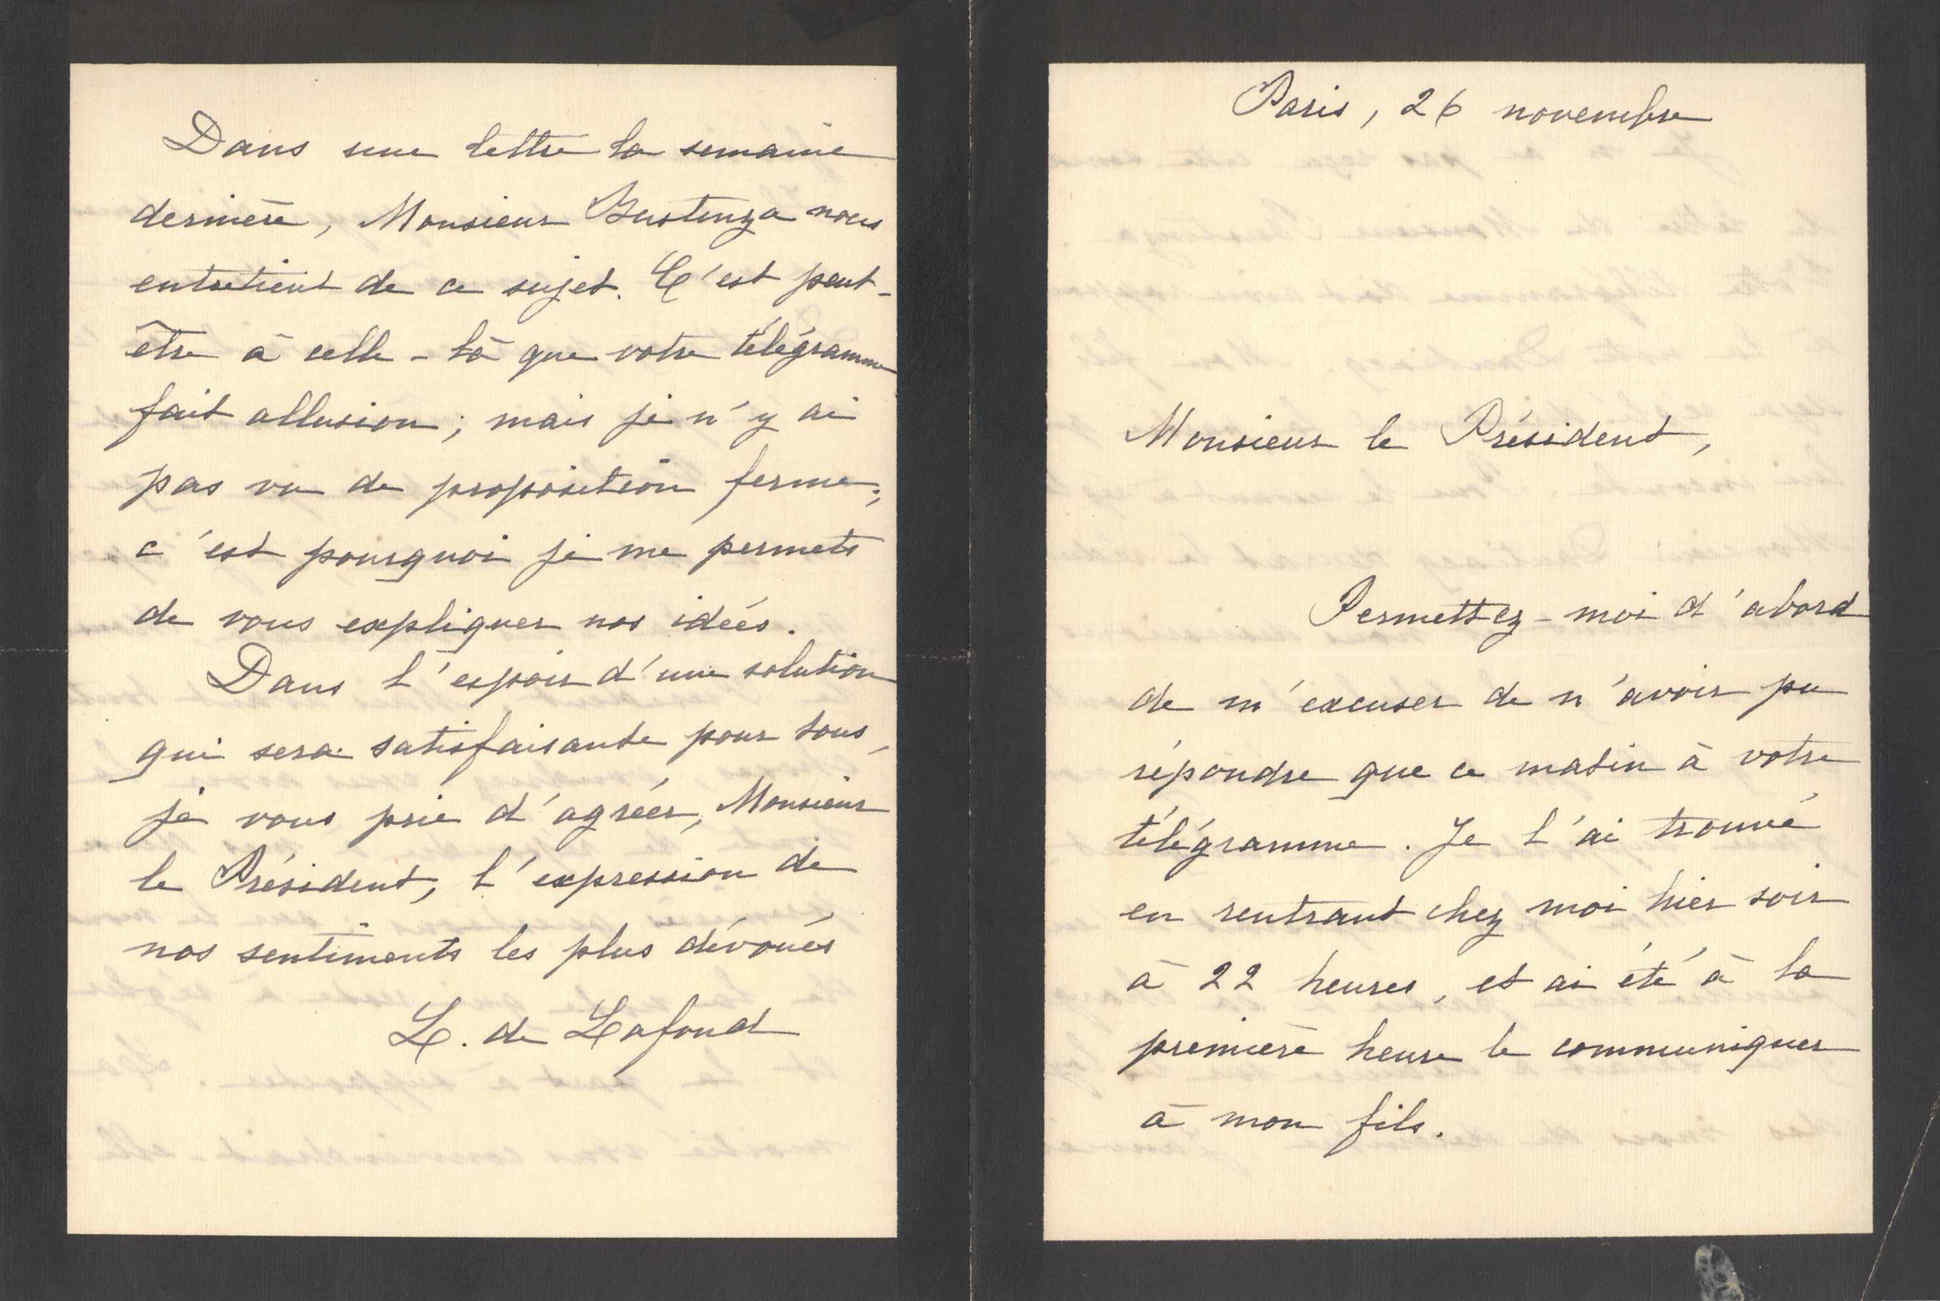 Paris, 26 novembre
Monsieur le Président,
Permettez-moi d'abord
de m'excuser de n'avoir pu
répondre que ce matin à votre
télégramme. Je l'ai trouvé
en rentrant chez moi hier soir
à 22 heures, et ai été à la
première heure le communiquer
à mon fils.
Dans une lettre la semaine
dernière, Monsieur Bustinza nous
entretient de ce sujet. C'est peut-
être à celle-là que votre télégramme
fait allusion; mais je n'y ai
pas vu de proposition ferme;
c'est pourquoi je me permets
de vous expliquer nos idées.
Dans l'espoir d'une solution
qui sera satisfaisante pour tous,
je vous prie d'agréer, Monsieur
le Président, l'expression de
nos sentiments les plus dévoués
L. de Lafond